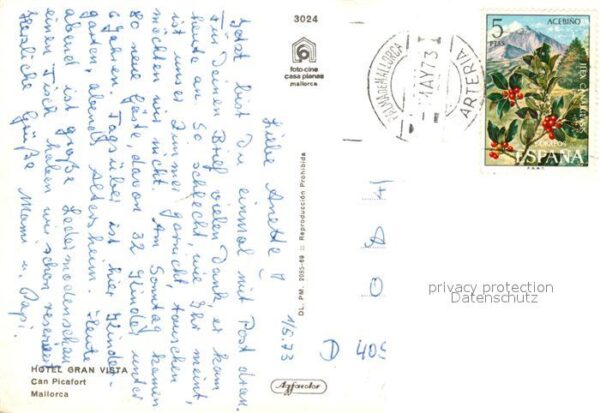 3024
foto-cine
casa planas
mallorca
PALMA DE MALLORCA
MAY 73
ARTERIA
5
PTAS
ACEBIÑO
ILEX CANARIENSIS
CORREOS
ESPAÑA
F.N.M.T.
1/5.73
Liebe Anette!
Jetzt bist Du einmal mit Post dran.
Für Deinen Brief vielen Dank, er kam
heute an. So schlecht, wie Ihr meint,
ist unser Zimmer gar nicht, tauschen
möchten wir nicht. Am Sonntag kamen
80 neue Gäste, davon 32 Kinder unter
6 Jahren. Tagsüber ist hier Kinder-
garten, abends Altersheim. Heute
abend ist große Ledermodenschau
einen Tisch haben wir schon reserviert
Herzliche Grüße Mami u. Papi.
DL. PM. 2095-69 :: Reproducción Prohibida
D 405
privacy protection
Datenschutz
HOTEL GRAN VISTA
Can Picafort
Mallorca
Agfacolor